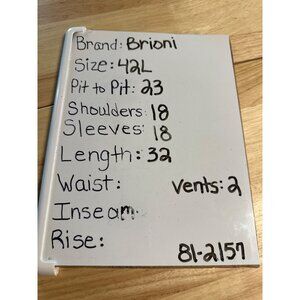 Brand: Brioni
Size: 42L
Pit to Pit: 23
Shoulders: 18
Sleeves: 18
Length: 32
Waist: Vents: 2
Inseam:
Rise:
81-2157